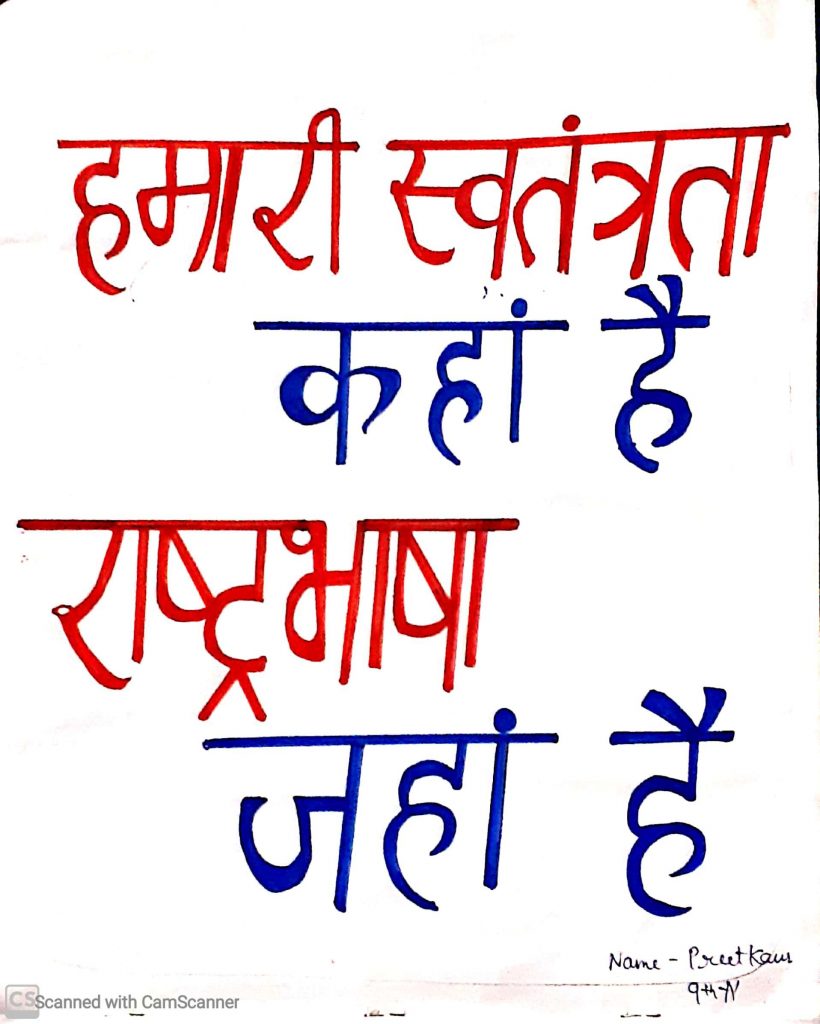 हमारी स्वतंत्रता
कहां है
राष्ट्रभाषा
जहां है
Name - Preet Kaur
9th-N
CS Scanned with CamScanner